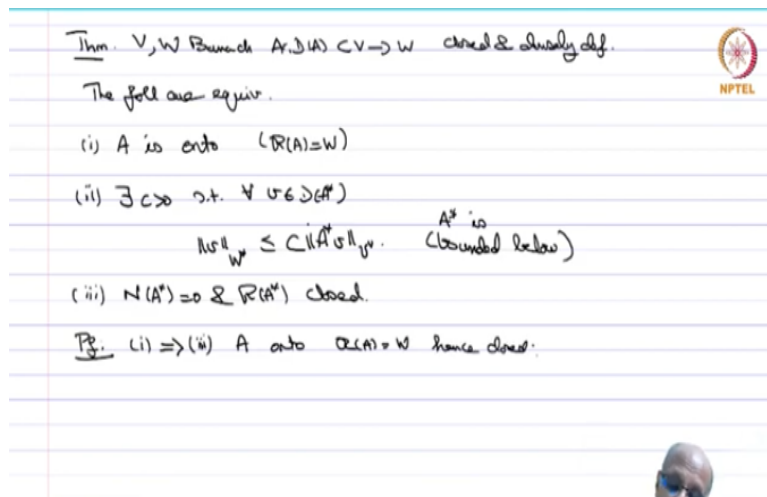 Thm. V, W Banach A: D(A) ⊂ V → W closed & densely def.
NPTEL
The foll are equiv.
(i) A is onto (R(A)=W)
(ii) ∃ C>0 s.t. ∀ v ∈ D(A*)
‖v‖_{W*} ≤ C‖A*v‖_{V*}. A* is (bounded below)
(iii) N(A*)=0 & R(A*) closed.
Pf. (i) => (iii) A onto R(A)=W hence closed.